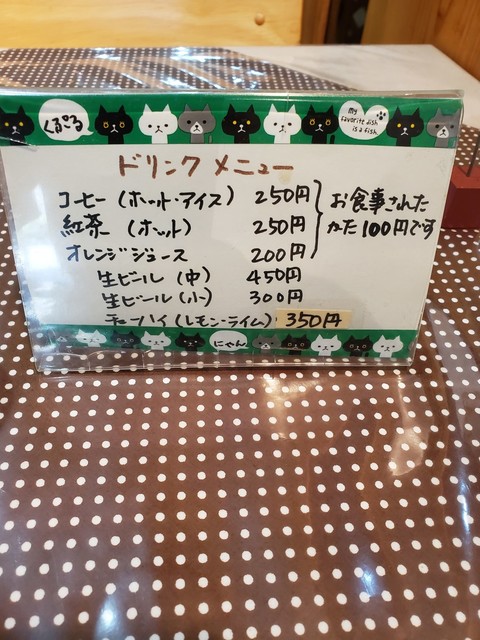 くるる
My favorite dish is a fish.
ドリンク メニュー
コーヒー (ホット・アイス) 250円
紅茶 (ホット) 250円
オレンジジュース 200円
お食事された
かた100円です
生ビール (中) 450円
生ビール (小) 300円
チューハイ (レモン・ライム) 350円
にゃん